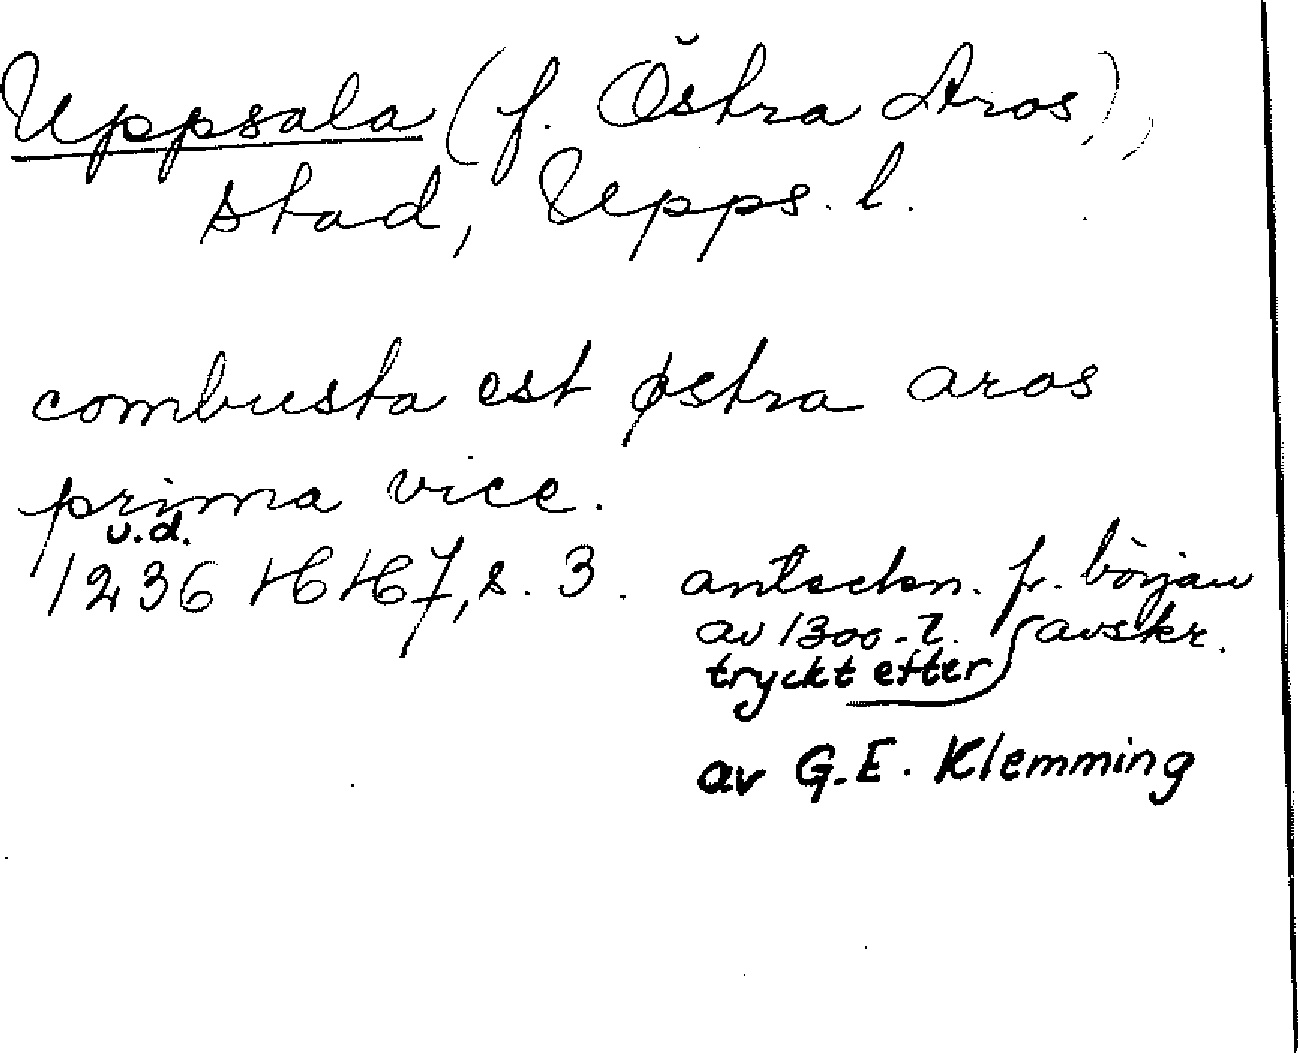 Uppsala (f. Östra Aros),
stad, Upps. l.
combusta est østra aros
prima vice.
u.d.
1236 HH 7, s. 3. anteckn. fr. början
av 1300-t. avskr.
tryckt efter
av G.E. Klemming